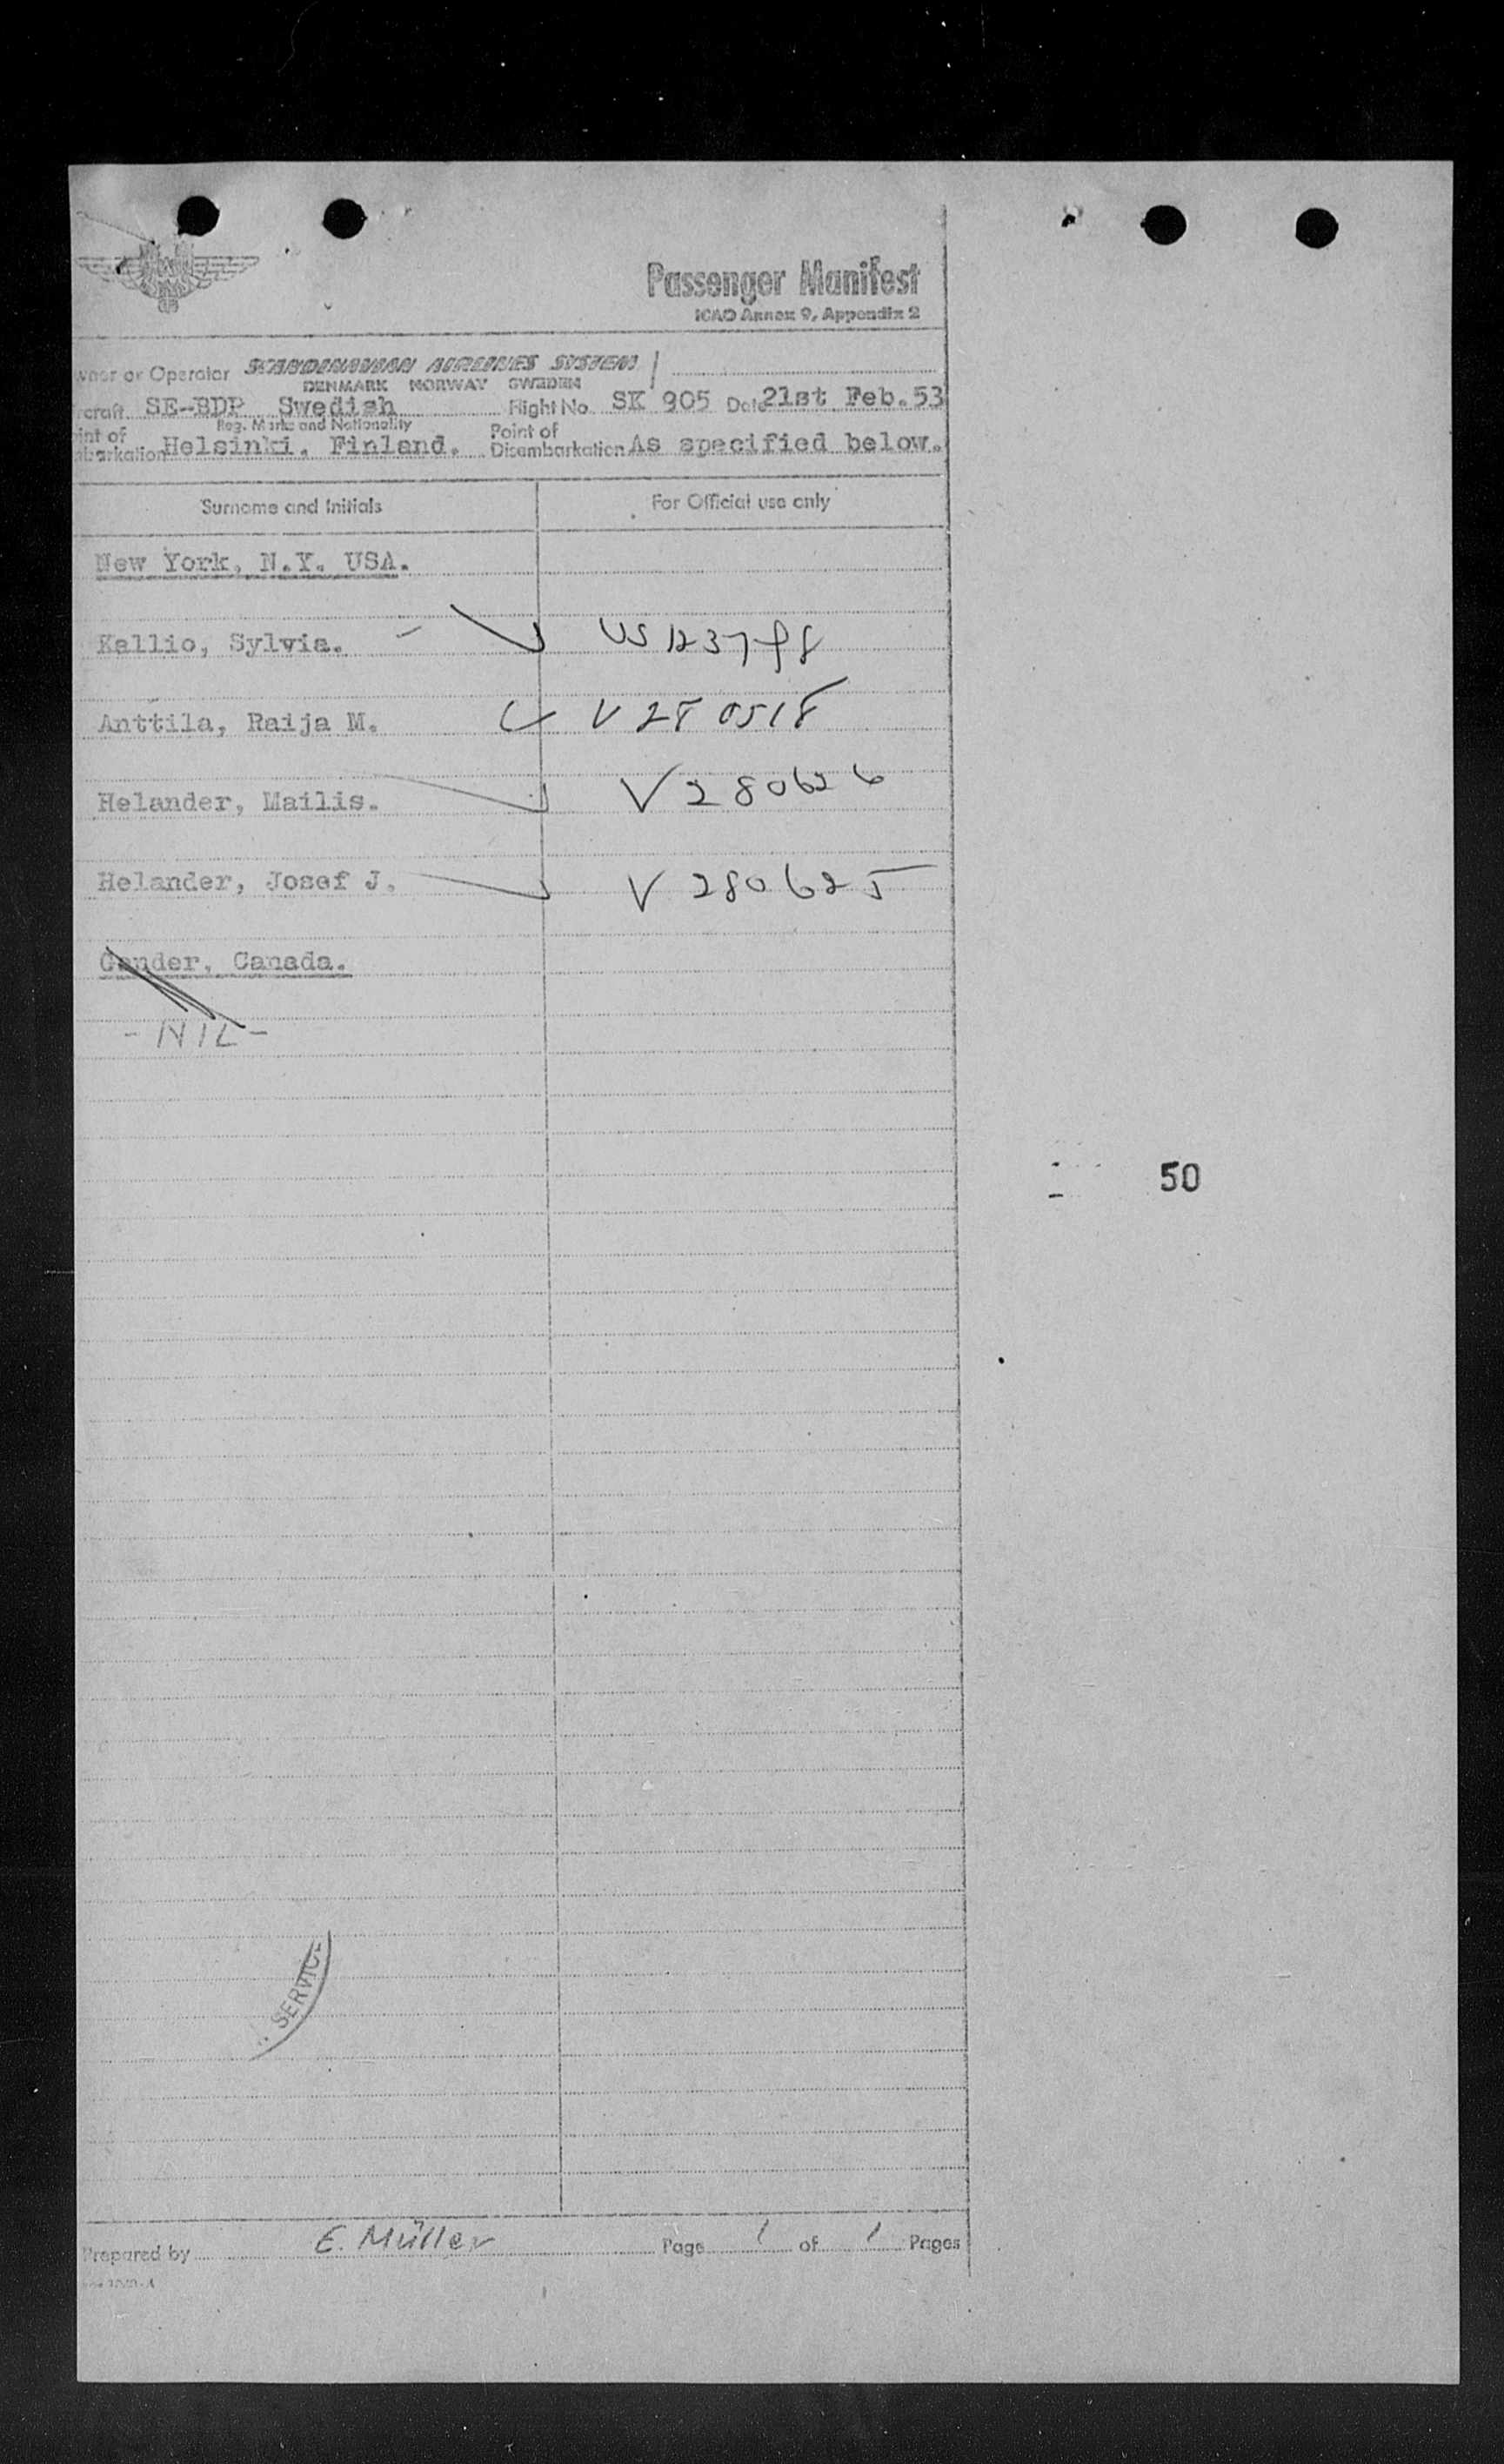 Passenger Manifest
ICAO Annex 9, Appendix 2
wner or Operator SCANDINAVIAN AIRLINES SYSTEM
DENMARK NORWAY SWEDEN
rcraft SE-BDP Swedish Flight No. SK 905 Date 21st Feb. 53
Reg. Marks and Nationality
int of Point of
mbarkation Helsinki, Finland. Disembarkation As specified below.
Surname and Initials For Official use only
New York, N.Y. USA.
Kallio, Sylvia.
Anttila, Raija M. V 280518
Helander, Mailis. V 280626
Helander, Josef J. V 280625
Gander, Canada.
- NIL -
50
SERVICE
Prepared by E. Müller Page 1 of 1 Pages